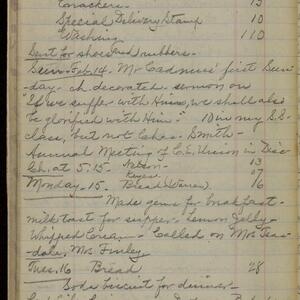 Crackers 15
Special Delivery Stamp 10
Washing 110
Sent for shoes and rubbers.
Sun. Feb. 14. Mr Cadmus' first Sun-
day - ch. decorated, sermon on
"If we suffer with Him, we shall also
be glorified with Him." 18 in my S.S.
class, but not Chas. Smith.
Annual Meeting of C.E. Union in Disc.
Ch. at 5.15. Nelson 13
Monday-15. Bread (Warren) 16
Made gems for breakfast -
milk toast for supper - Lemon Jelly -
Whipped Cream - Called on Mrs Teas-
dale, Mrs Finley
Tues. 16 Bread 28
Soda biscuit for dinner -